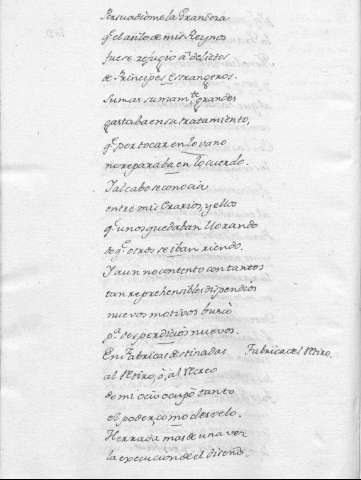 Persuadiome la Grandeza
q.e el asilo de mis Reynos
fuese refugio á delictos
de Principes Estrangeros.
Sumas sumam.te grandes
gastaba en su tratamiento,
q.e por tocar en lo vano
no reparaba en lo cuerdo.
I al cabo se conocia
entre mis Erarios, y ellos
q.e unos quedaban llorando
lo q.e otros se iban riendo.
I aun no contento con tantos
tan reprehensibles dispendios
nuevos motivos buscò
p.a desperdicios nuevos.
En Fabricas destinadas Fabrica del Retiro,
al Retiro, ò, al Recreo
de mi ocio ocupò tanto
el poder, como el desvelo.
Herrada mas de una vez
la execucion de el Diseño